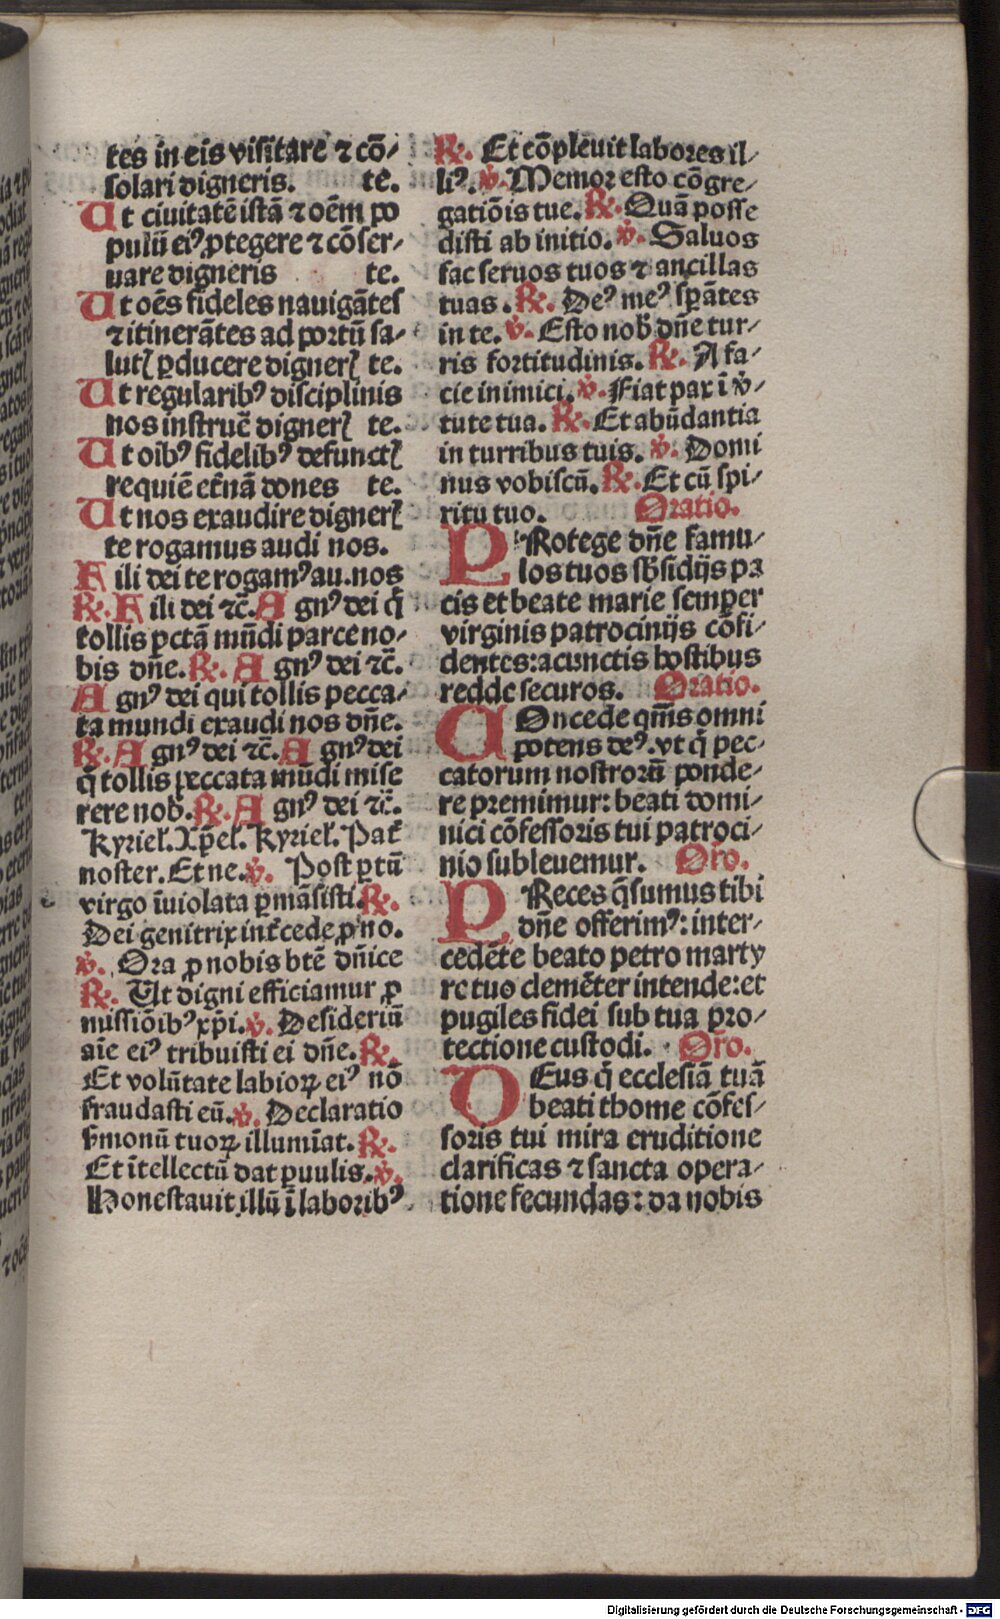 tes in eis visitare ⁊ cō/
solari digneris. te.
Ut ciuitatē istā ⁊ oēm po
pulū eiꝰ ꝓtegere ⁊ cōser/
uare digneris te.
Ut oēs fideles nauigātes
⁊ itinerātes ad portū sa/
lutꝭ ꝑducere dignerꝭ te.
Ut regularibꝰ disciplinis
nos instruē dignerꝭ te.
Ut oībꝰ fidelibꝰ defunctꝭ
requiē etnā dones te.
Ut nos exaudire dignerꝭ
te rogamus audi nos.
Fili dei te rogamꝰ au. nos
℟. Fili dei ⁊c̄. Agnꝰ dei q̇
tollis pctā mūdi parce no/
bis dn̄e. ℟. Agnꝰ dei ⁊c̄.
Agnꝰ dei qui tollis pecca/
ta mundi exaudi nos dn̄e.
℟. Agnꝰ dei ⁊c̄. Agnꝰ dei
q̇ tollis peccata mūdi mise
rere nob̄. ℟. Agnꝰ dei ⁊c̄.
Kyriel̄. Xp̄el̄. Kyriel̄. Pat̄
noster. Et ne. ℣. Post ꝑtū
virgo īuiolata ꝑmāsisti. ℟.
Dei genitrix int̄cede ꝓ no.
℣. Ora ꝓ nobis btē dn̄ice
℟. Ut digni efficiamur ꝓ
missiōibꝰ xp̄i. ℣. Desideriū
aīe eiꝰ tribuisti ei dn̄e. ℟.
Et volūtate labioꝝ eiꝰ nō
fraudasti eū. ℣. Declaratio
s̄monū tuoꝝ illumīat. ℟.
Et ītellectū dat ꝑuulis. ℣.
Honestauit illū ī laboribꝰ.
℟. Et cōpleuit labores il/
liꝰ. ℣. Memor esto cōgre/
gatiōis tue. ℟. Quā posse
disti ab initio. ℣. Saluos
fac seruos tuos ⁊ ancillas
tuas. ℟. Deꝰ meꝰ sꝑātes
in te. ℣. Esto nob̄ dn̄e tur/
ris fortitudinis. ℟. A fa/
cie inimici. ℣. Fiat pax ī v̇/
tute tua. ℟. Et abūdantia
in turribus tuis. ℣. Domi
nus vobiscū. ℟. Et cū spi/
ritu tuo. Oratio.
PRotege dn̄e famu/
los tuos sb̄sidijs pa
cis et beate marie semper
virginis patrocinijs cōfi/
dentes: a cunctis hostibus
redde securos. Oratio.
COncede qm̄s omni
potens deꝰ. vt q̇ pec
catorum nostrorū ponde/
re premimur: beati domi/
nici cōfessoris tui patroci/
nio subleuemur. Or̄o.
PReces q̄sumus tibi
dn̄e offerimꝰ: inter/
cedēte beato petro marty
re tuo clemēter intende: et
pugiles fidei sub tua pro/
tectione custodi. Or̄o.
DEus q̇ ecclesiā tuā
beati thome cōfes/
soris tui mira eruditione
clarificas ⁊ sancta opera/
tione fecundas: da nobis
Digitalisierung gefördert durch die Deutsche Forschungsgemeinschaft - DFG